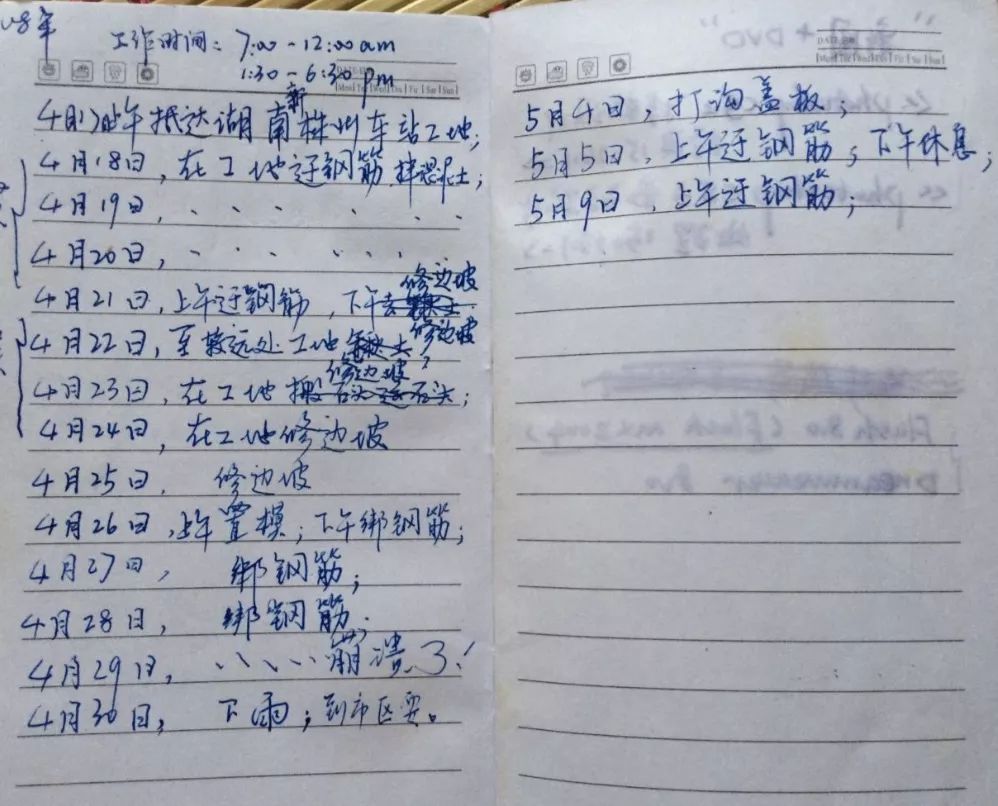 08年
工作时间: 7:00-12:00am
1:30-6:30pm
4月17日上午抵达湖南株州新车站工地;
4月18日,在工地迂钢筋,拌混泥土;
4月19日,、、、、、、
4月20日,、、、、、、
4月21日,上午迂钢筋,下午去修边坡
4月22日,至较远处工地修边坡,
4月23日,在工地修边坡,
4月24日,在工地修边坡
4月25日. 修边坡
4月26日,上午置模;下午绑钢筋;
4月27日, 绑钢筋;
4月28日, 绑钢筋.
4月29日,、、、、崩溃了!
4月30日, 下雨;到市区耍。
5月4日,打沟盖板;
5月5日,上午迂钢筋;下午休息;
5月9日,上午迂钢筋;